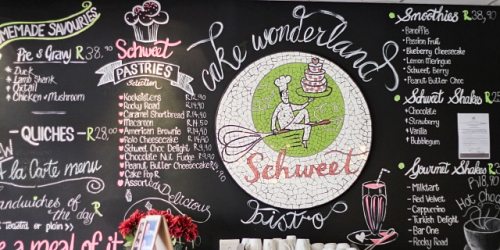 HEMEMADE SAVOURIES
Pie & Gravy R38.90
Duck
Lamb Shank
Oxtail
Chicken & Mushroom
QUICHES - R28.00
A la Carte menu
Sandwiches of the day
toasted or plain
a meal of it
Schweet
PASTRIES
Selection
Rocksitters
Rocky Road
Caramel Shortbread
Macaroon
American Brownie
Rolo Cheesecake
Schweet Choc Delight
Chocolate Nut Fudge
Peanut Butter Cheesecake
Cake Pop
Assorted Delicious
cake wonderland
Schweet
bistro
Smoothies R38.
Banoffie
Passion Fruit
Blueberry Cheesecake
Lemon Meringue
Schweet Berry
Peanut Butter Choc
Schweet Shakes R25
Chocolate
Strawberry
Vanilla
Bubblegum
Gourmet Shakes
Milktart
Red Velvet
Cappuccino
Turkish Delight
Bar One
Rocky Road
R18.90
Hot Choc